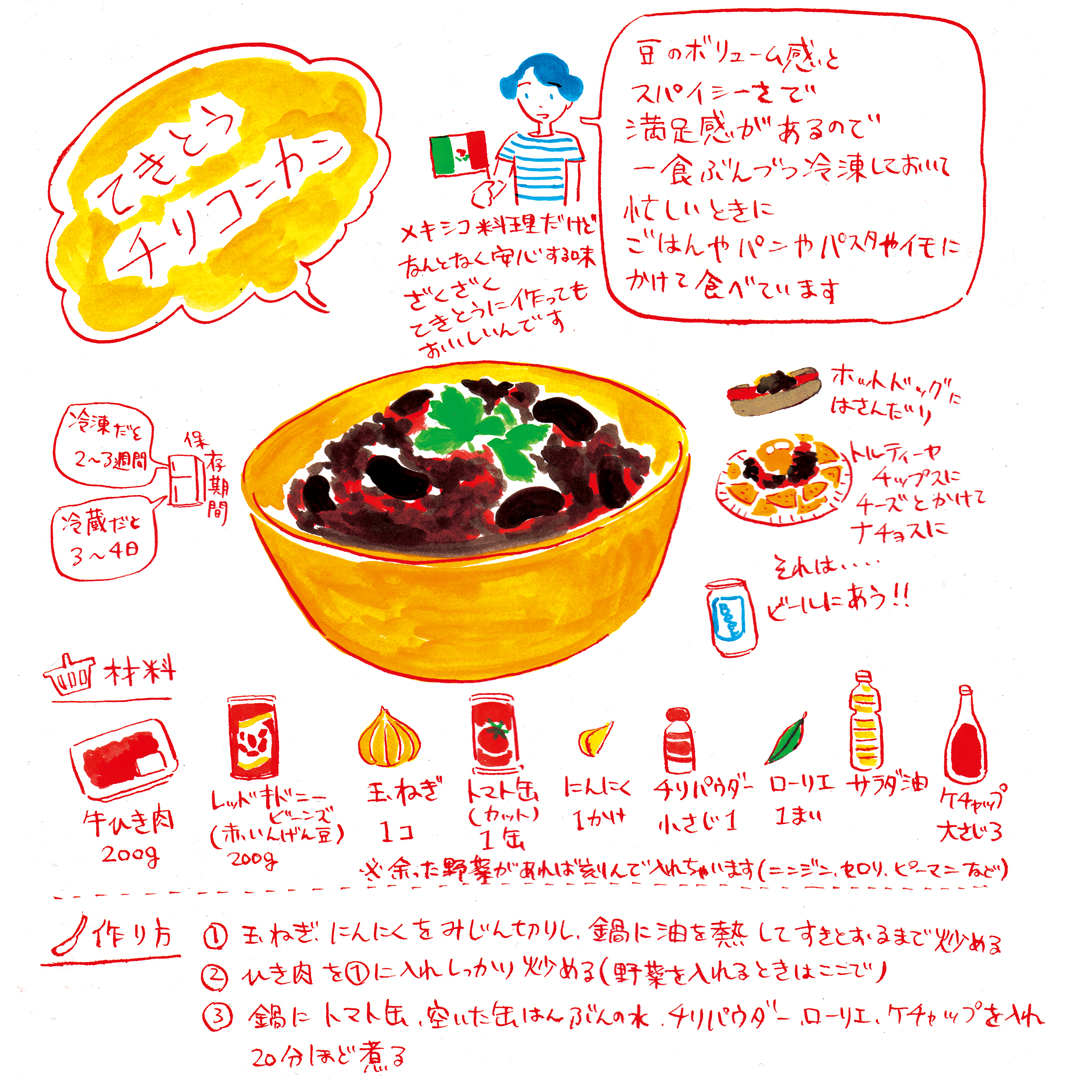 てきとう
チリコンカン
メキシコ料理だけど
なんとなく安心する味
ざくざく
てきとうに作っても
おいしいんです
豆のボリューム感と
スパイシーさで
満足感があるので
一食ぶんづつ冷凍しておいて
忙しいときに
ごはんやパンやパスタやイモに
かけて食べています
冷凍だと
2〜3週間
保存期間
冷蔵だと
3〜4日
ホットドッグに
はさんだり
トルティーヤ
チップスに
チーズとかけて
ナチョスに
それは‥‥
ビールにあう!!
BEER
材料
牛ひき肉
200g
レッドキドニー
ビーンズ
(赤いんげん豆)
200g
玉ねぎ
1コ
トマト缶
(カット)
1缶
にんにく
1かけ
チリパウダー
小さじ1
ローリエ
1まい
サラダ油
ケチャップ
大さじ3
※余った野菜があれば刻んで入れちゃいます(ニンジン、セロリ、ピーマンなど)
作り方
① 玉ねぎ、にんにくをみじん切りし、鍋に油を熱してすきとおるまで炒める
② ひき肉を①に入れしっかり炒める(野菜を入れるときはここで)
③ 鍋にトマト缶、空いた缶はんぶんの水、チリパウダー、ローリエ、ケチャップを入れ
20分ほど煮る